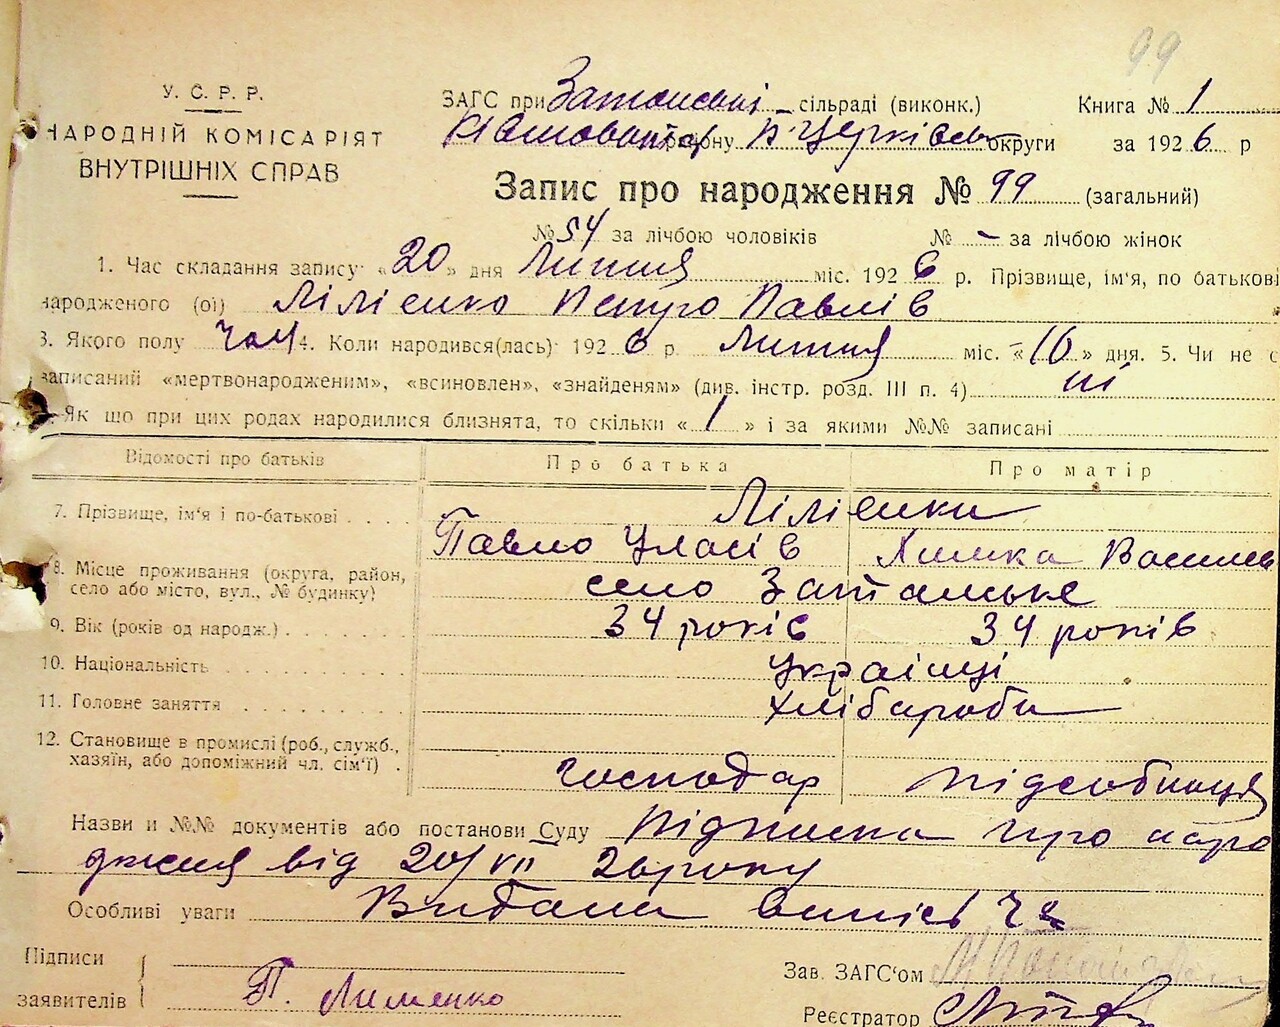 99
У. С. Р. Р.
НАРОДНІЙ КОМІСАРІЯТ
ВНУТРІШНІХ СПРАВ
ЗАГС при сільраді (виконк.) Книга № 1
району Б-Церківсь округи за 1926 р
Запис про народження № 99 (загальний)
№ 54 за лічбою чоловіків № – за лічбою жінок
1. Час складання запису „20„ дня Липня міс. 1926 р. Прізвище, ім'я, по батькові
народженого (ої) Лілієнко Петро Павлів
3. Якого полу чол 4. Коли народився(лась) 1926 р Липня міс. „16„ дня. 5. Чи не є
записаний «мертвонародженим», «всиновлен», «знайденям» (див. інстр. розд. III п. 4) ні
Як що при цих родах народилися близнята, то скільки „1„ і за якими №№ записані
Відомості про батьків Про батька Про матір
7. Прізвище, ім'я і по-батькові Лілієнки
Павло Уласів Химка Василів
8. Місце проживання (округа, район,
село або місто, вул., № будинку) село
9. Вік (років од народж.) 34 років 34 років
10. Національність Українці
11. Головне заняття хлібароби
12. Становище в промислі (роб., служб.,
хазяїн, або допоміжний чл. сім'ї) господар підсобниця
Назви и №№ документів або постанови Суду Підписка про наро
дження від 20/VII 26 року
Особливі уваги Видана випись
Підписи
заявителів П. Лименко
Зав. ЗАГС'ом
Реєстратор